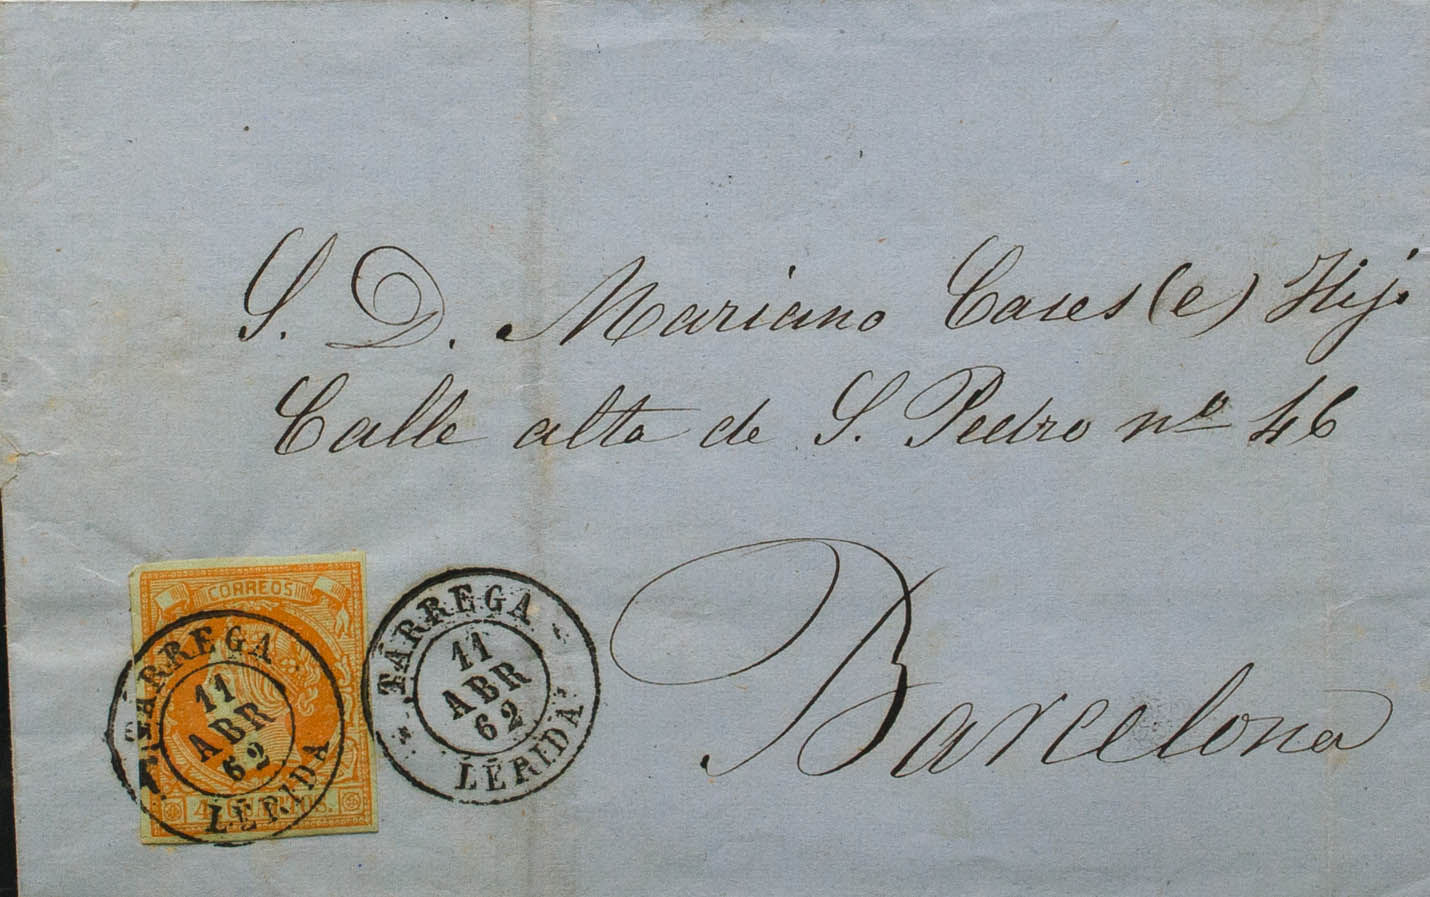 S. D. Mariano Cases (e) Hijo
Calle alta de S. Pedro nº 46
Barcelona
CORREOS
4 CUARTOS.
TÁRREGA
11
ABR
62
LÉRIDA
TÁRREGA
11
ABR
62
LÉRIDA